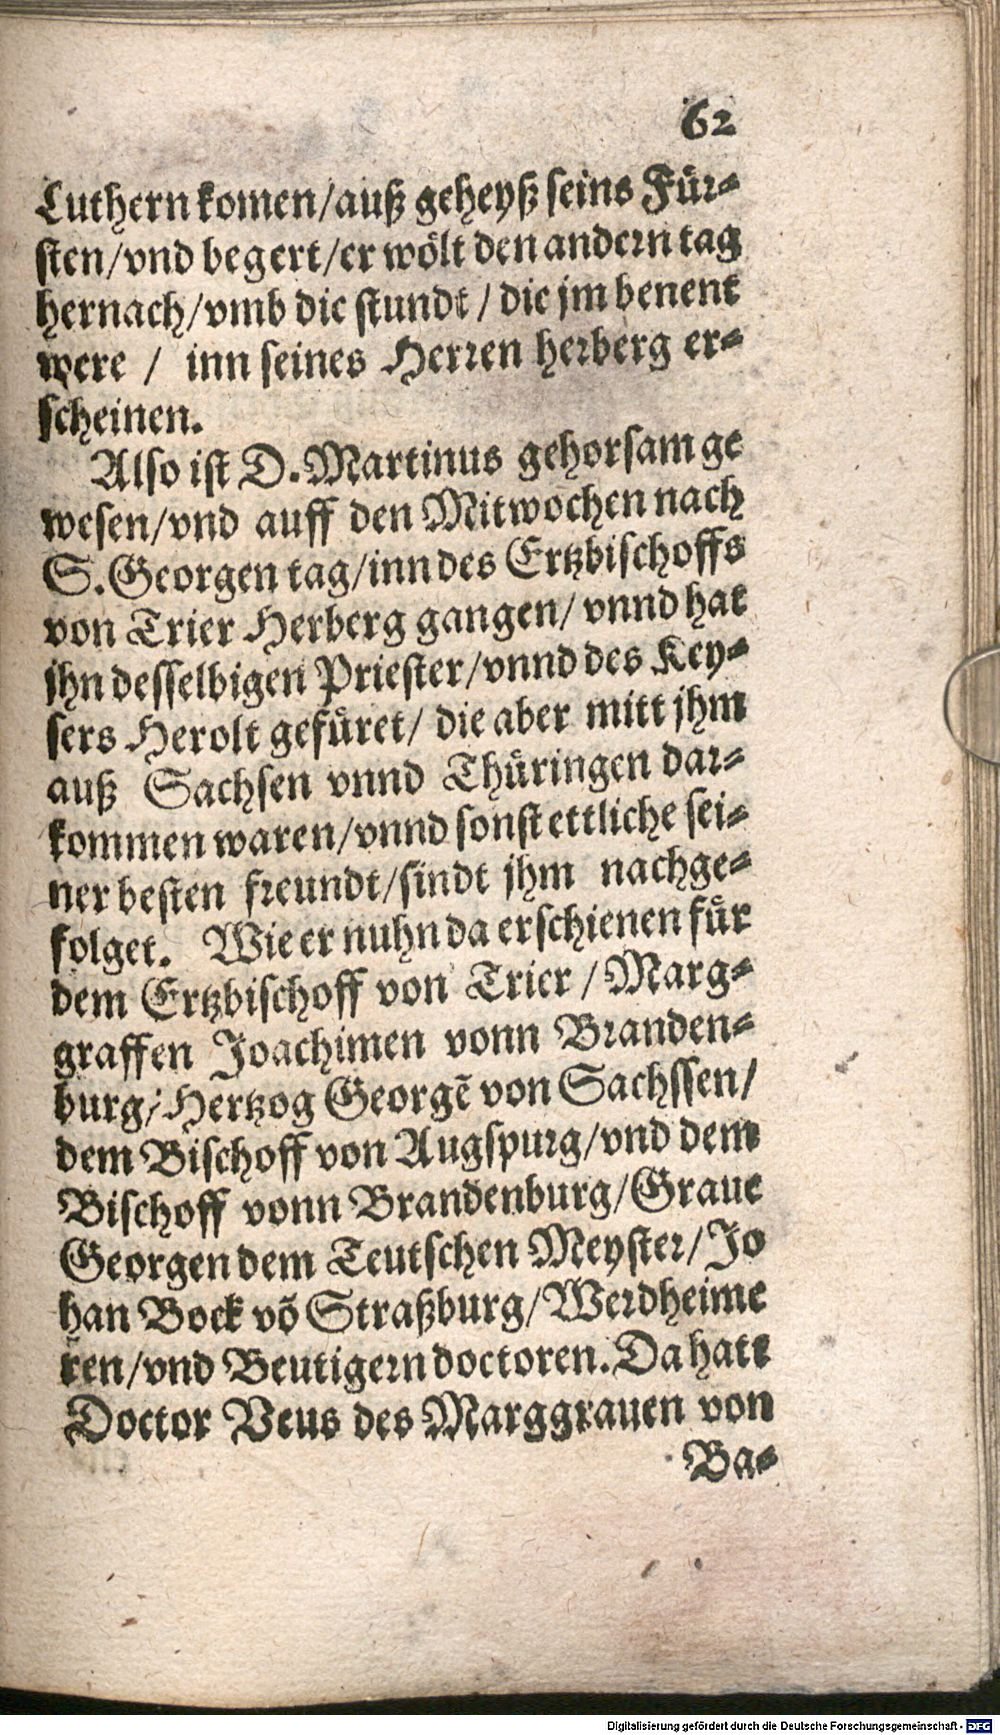 62
Luthern komen/auß geheyß seins Für-
sten/vnd begert/er wölt den andern tag
hernach/vmb die stundt / die jm benent
were / inn seines Herren herberg er-
scheinen.
Also ist D. Martinus gehorsam ge
wesen/vnd auff den Mitwochen nach
S. Georgen tag/inn des Ertzbischoffs
von Trier Herberg gangen/ vnnd hat
jhn desselbigen Priester/vnnd des Key-
sers Herolt gefüret/ die aber mitt jhm
auß Sachsen vnnd Thüringen dar-
kommen waren/vnnd sonst ettliche sei-
ner besten freundt/sindt jhm nachge-
folget. Wie er nuhn da erschienen für
dem Ertzbischoff von Trier / Marg-
graffen Joachimen vonn Branden-
burg/Hertzog Georgẽ von Sachssen/
dem Bischoff von Augspurg/vnd dem
Bischoff vonn Brandenburg/Graue
Georgen dem Teutschen Meyster/Jo
han Bock võ Straßburg/Werdheime
ren/vnd Beutigern doctoren. Da hatt
Doctor Veus des Marggrauen von
Ba-
Digitalisierung gefördert durch die Deutsche Forschungsgemeinschaft - DFG